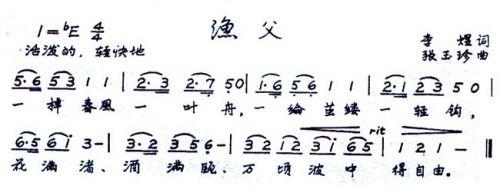 渔父
1=ᵇE 4/4
李煜词
活泼的，轻快地
张玉珍曲
5·6 53 1 1 | 2·3 2·7 5 0 | 1·6 56 1 1 | 2·1 23 5 0 |
一棹春風一叶舟，一纶茧缕一轻钩，
6·5 61 3- | 3·2 35 6- | 32 12 31 65 | 1 2 1 - ‖
rit
花满渚、酒满瓯、万顷波中得自由。